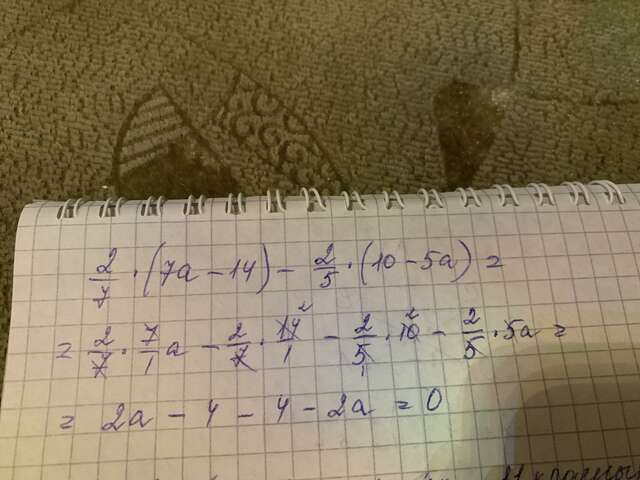 2/7 · (7a − 14) − 2/5 · (10 − 5a) =
= 2/7 · 7/1 a − 2/7 · 14/1 2 − 2/5 1 · 10 2 − 2/5 · 5a =
= 2a − 4 − 4 − 2a = 0